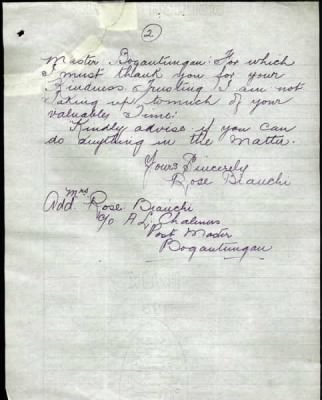 (2)
Master Bogantungan: For which
I must thank you for your
Kindness. Trusting I am not
taking up to much of your
valuables Time:
Kindly advise if you can
do anything in the Matter.
Yours Sincerely
Rose Bianchi
Add Mrs Rose Bianchi
c/o A.L. Chalmers
Post Master
Bogantungan